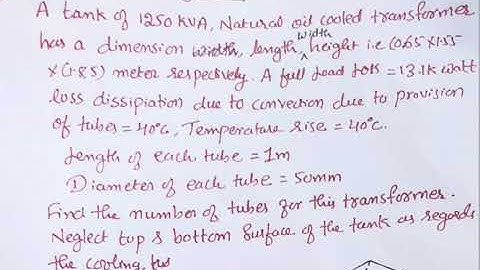 A tank of 1250 KVA, Natural oil cooled transformer
has a dimension width, length, width height i.e (0.65 x 1.55
x (1.85) meter respectively. A full load loss = 13.1 K watt
loss dissipiation due to convection due to provision
of tubes = 40°C, Temperature rise = 40°C.
Length of each tube = 1m
Diameter of each tube = 50mm
Find the number of tubes for this transformer.
Neglect top & bottom Surface of the tank as regards
the cooling.